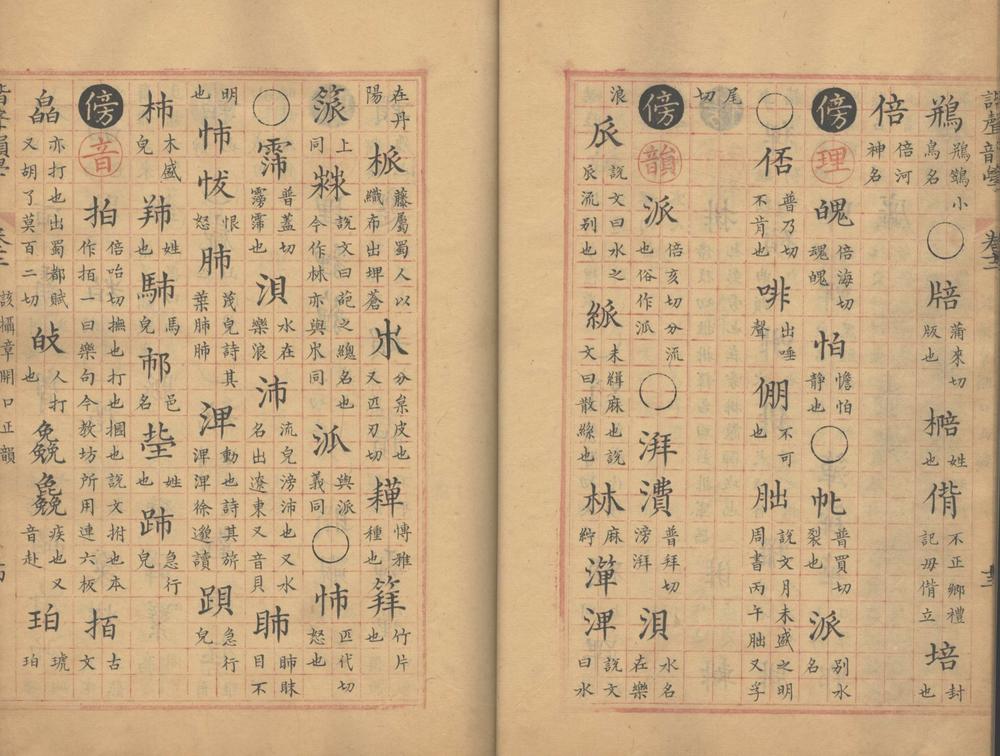 鵧 鵧鷑小鳥名 ○ 蒲來切版也 棓 姓也 偝 不正鄉禮記毋偝立 培 封也
倍 倍河神名
傍 理 倍海切 怕 憺怕静也 ○ 普買切裂也 派 別水名
○ 俖 普乃切不肯也 啡 出唾聲 倗 不可也 朏 說文月未盛之明周書丙午朏又孚
尾切
傍 韻 派 倍亥切分流也俗作派 ○ 湃 普拜切滂湃 浿 水名在樂
浪 𠂢 說文曰水之衺流別也 未緝麻也說文曰散絲也 𣏟 麻紵 說文曰水
在丹陽 藤屬蜀人以織布出埤蒼 𣎳 分枲皮也又匹刃切 博雅種也 箄 竹片也
上同 說文曰萉之緫名也今作𣏟亦與𣎳同 與派義同 ○ 怖 匹代切怒也
○ 霈 普蓋切雱霈也 浿 水在樂浪 沛 流皃滂沛也又水名出遼東又音貝 目不
明也 恨怒 肺 茂皃詩其葉肺肺 淠 動也詩其旂淠淠徐邈讀 急行皃
柿 木盛皃 姓也 馬皃 邑名 姓也 急行皃
傍 音 拍 倍咍切撫也打也摑也說文拊也本作㧣一曰樂句今教坊所用連六板 㧣 古文
皛 亦打也出蜀都賦又胡了莫百二切 人打也 疾也又音赴 珀 琥珀
諧聲韻學 該攝章開口正韻